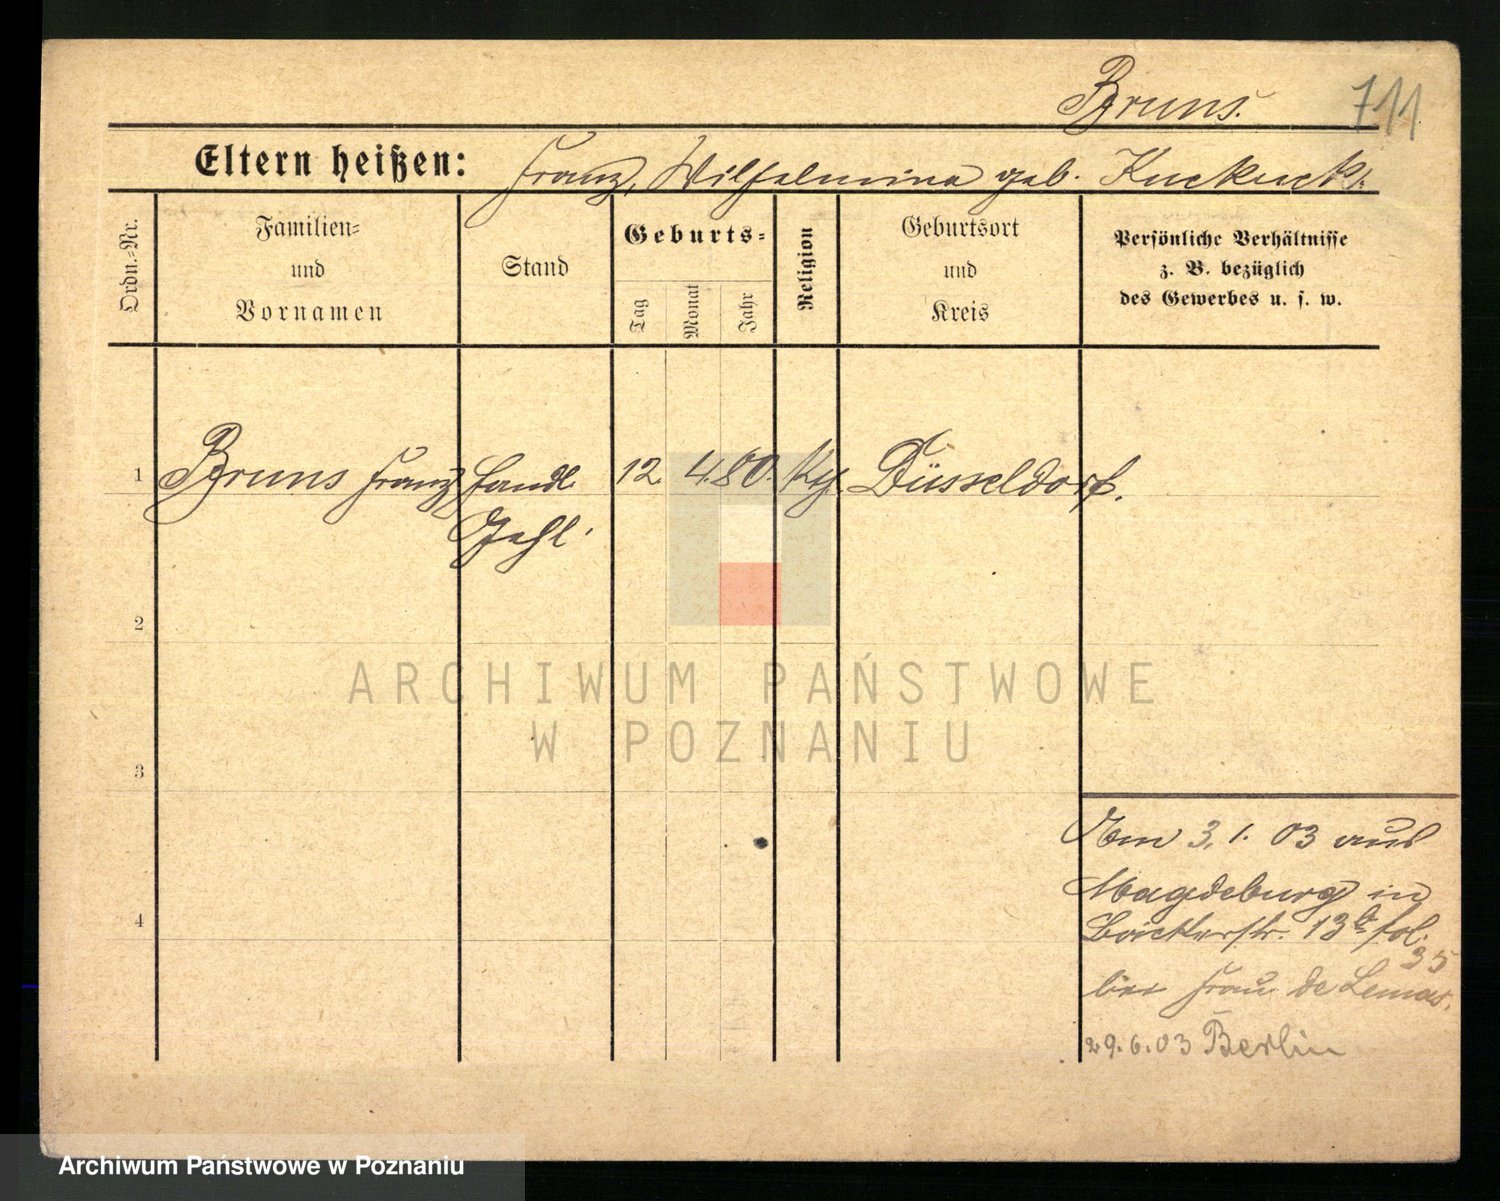 Bruns.
711
Eltern heißen: Franz, Wilhelmina geb. Kuckuck.
Ordn.-Nr.
Familien-
und
Vornamen
Stand
Geburts-
Tag
Monat
Jahr
Religion
Geburtsort
und
Kreis
Persönliche Verhältnisse
z. B. bezüglich
des Gewerbes u. s. w.
1 Bruns Franz Handl. 12. 4. 80. Düsseldorf.
Gehl.
2
3
4
Am 3. 1. 03 aus
Magdeburg in
13 fol.
35
bei Frau de
29. 6. 03 Berlin
ARCHIWUM PAŃSTWOWE
W POZNANIU
Archiwum Państwowe w Poznaniu